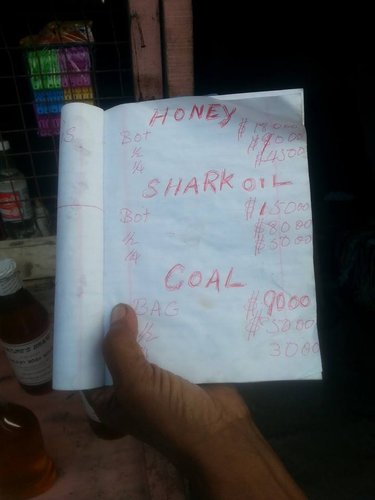 HONEY
Bot $18000
1/2 $9000
1/4 $4500
SHARK OIL
Bot $15000
1/2 $8000
1/4 $5000
COAL
BAG $9000
1/2 $5000
3000